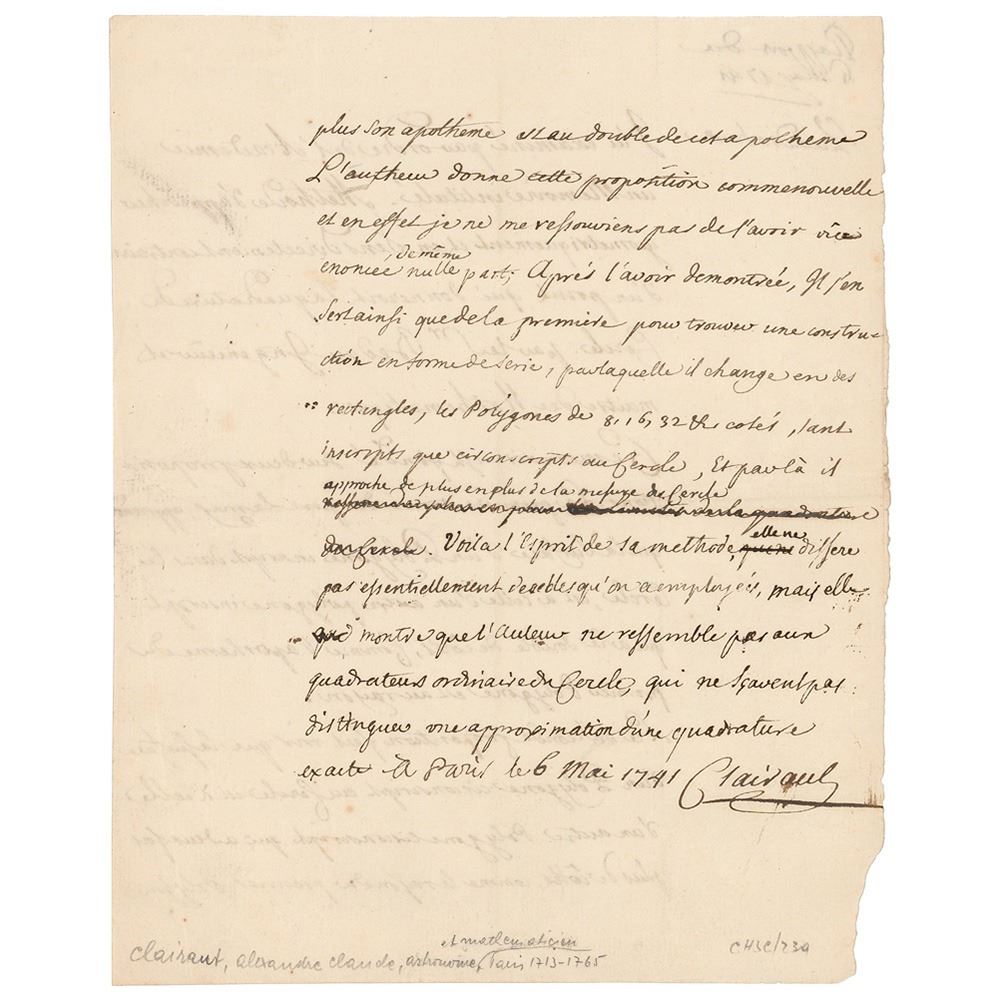 plus son apotheme est au double de cet apotheme
L'autheur donne cette proposition comme nouvelle
et en effet je ne me ressouviens pas de l'avoir vûe
de même
enoncée nulle part; Après l'avoir demontrée, Il s'en
sert ainsi que de la premiere pour trouver une constru-
ction en forme de serie, par laquelle il change en des
rectangles, les Polygones de 8, 16, 32 &c cotés, tant
inscripts que circonscripts au Cercle, Et par là il
approche de plus en plus de la mesure du Cercle
de la quadrature
du Cercle. Voila l'Esprit de sa methode, elle ne differe
pas essentiellement de celles qu'on a employées, mais elle
montre que l'Auteur ne ressemble pas aux
quadrateurs ordinaires du Cercle, qui ne sçavent pas
distinguer une approximation d'une quadrature
exacte A Paris le 6 Mai 1741 Clairaut
et mathematicien
Clairaut, alexandre claude, astronome, Paris 1713-1765